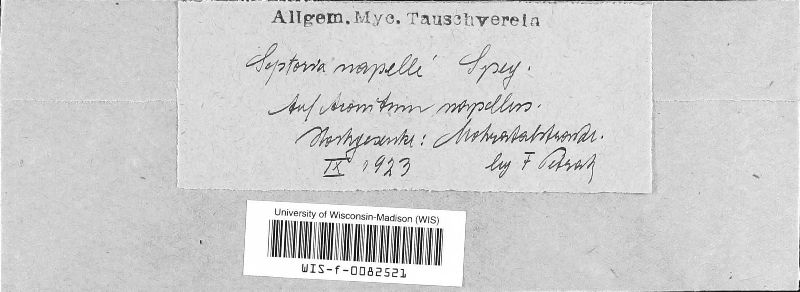 Allgem. Myc. Tauschverein
Septoria napelli Speg.
Auf Aconitum napellus.
Hochgesenke:
IX 1923 leg F Petrak
University of Wisconsin-Madison (WIS)
WIS-f-0082521